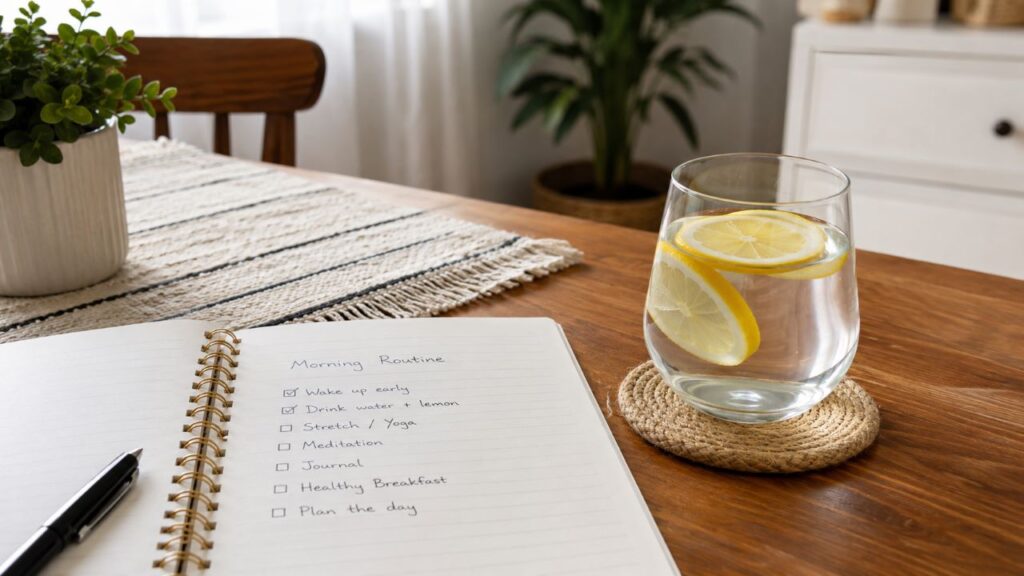 Morning Routine
☑ Wake up early
☑ Drink water + lemon
☐ Stretch / Yoga
☐ Meditation
☐ Journal
☐ Healthy Breakfast
☐ Plan the day